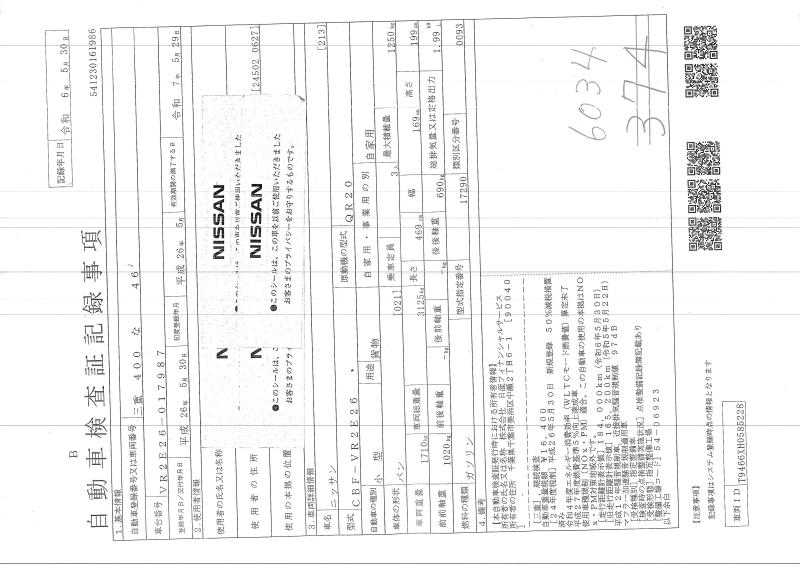 B
自動車検査証記録事項
記録年月日 令和 6年 5月 30日
541230161986
1. 基本情報
自動車登録番号又は車両番号
三重 400 な 46
車台番号 VR2E26-017987
登録年月日/交付年月日 平成 26年 5月 30日
初度登録年月 平成 26年 5月
有効期間の満了する日 令和 7年 5月 29日
2. 使用者情報
使用者の氏名又は名称
使用者の住所
[24502 0627]
使用の本拠の位置
NISSAN
●このシールは、この車を以前ご使用いただきました
NISSAN
●このシールは、この車を以前ご使用いただきました
お客さまのプライバシーをお守りするものです。
3. 車両詳細情報
車名 ニッサン [213]
型式 CBF-VR2E26
原動機の型式 QR20
自動車の種別 小型
用途 貨物
自家用・事業用の別 自家用
車体の形状 バン [021]
乗車定員 3人
最大積載量 1250kg
車両重量 1710kg
車両総重量 3125kg
長さ 469cm
幅 169cm
高さ 199cm
前前軸重 1020kg
前後軸重 -kg
後前軸重 -kg
後後軸重 690kg
総排気量又は定格出力 1.99L
燃料の種類 ガソリン
型式指定番号 17290
類別区分番号 0093
4. 備考
[本自動車検査証発行時における所有者情報]
所有者の氏名又は名称 株式会社 日産フィナンシャルサービス
所有者の住所 千葉県千葉市美浜区中瀬2丁目6-1 [90040
[三重], 継続検査
自動車重量税額 ¥16,400
[24年度税制] 平成26年5月30日 新規登録 50%減税措置
済み
令和4年度エネルギー消費効率(WLTCモード燃費値) 算定未了
平成27年度燃費基準5%向上達成車
使用車種規制(NOx・PM)適合, この自動車の使用の本拠はNO
x・PM対策地域外です。
[走行距離計表示値] 184,000km(令和6年5月30日)
[旧走行距離計表示値] 165,200km(令和5年5月22日)
平成12年騒音規制車, 近接排気騒音規制値 97dB
マフラー加速騒音規制適用車
[受検種別] 指定整備車
[検査時の点検整備実施状況] 点検整備記録簿記載あり
[受検形態] 指定整備工場
[整備工場コード] 54-06923
以下余白
6034
374
【注意事項】
記録事項はシステム登録時点の情報となります
車両ID T9466XH0585228